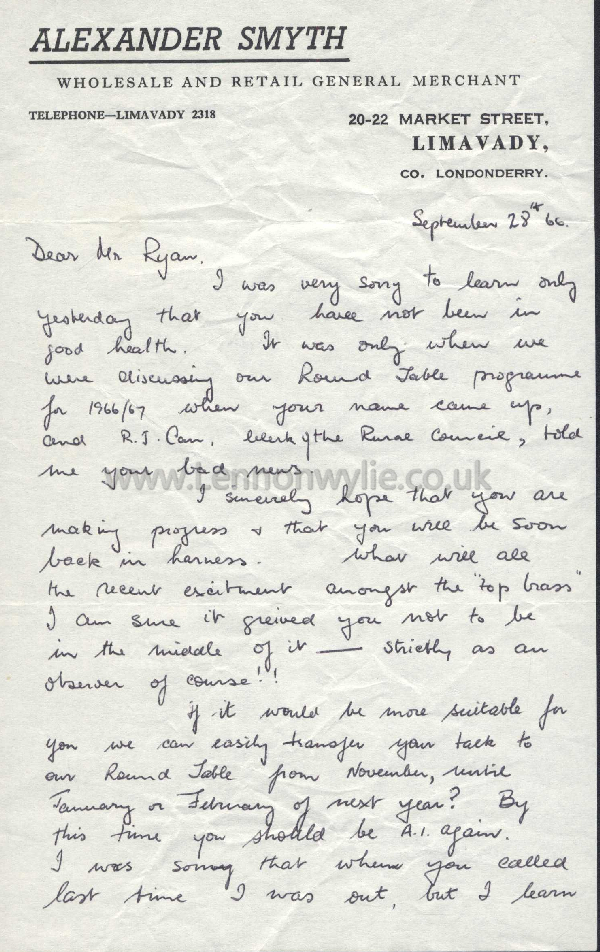 ALEXANDER SMYTH
WHOLESALE AND RETAIL GENERAL MERCHANT
TELEPHONE—LIMAVADY 2318
20-22 MARKET STREET,
LIMAVADY,
CO. LONDONDERRY.
September 28th 66.
Dear Mr Ryan,
I was very sorry to learn only
yesterday that you have not been in
good health. It was only when we
were discussing our Round Table programme
for 1966/67 when your name came up,
and R.J. Carr, Clerk of the Rural Council, told
me your bad news.
www.Lennonwylie.co.uk
I sincerely hope that you are
making progress & that you will be soon
back in harness. What will all
the recent excitment amongst the "top brass"
I am sure it greived you not to be
in the middle of it — strictly as an
observer of course!!
If it would be more suitable for
you we can easily transfer your talk to
our Round Table from November, until
January or February of next year? By
this time you should be A.1. again.
I was sorry that when you called
last time I was out, but I learn